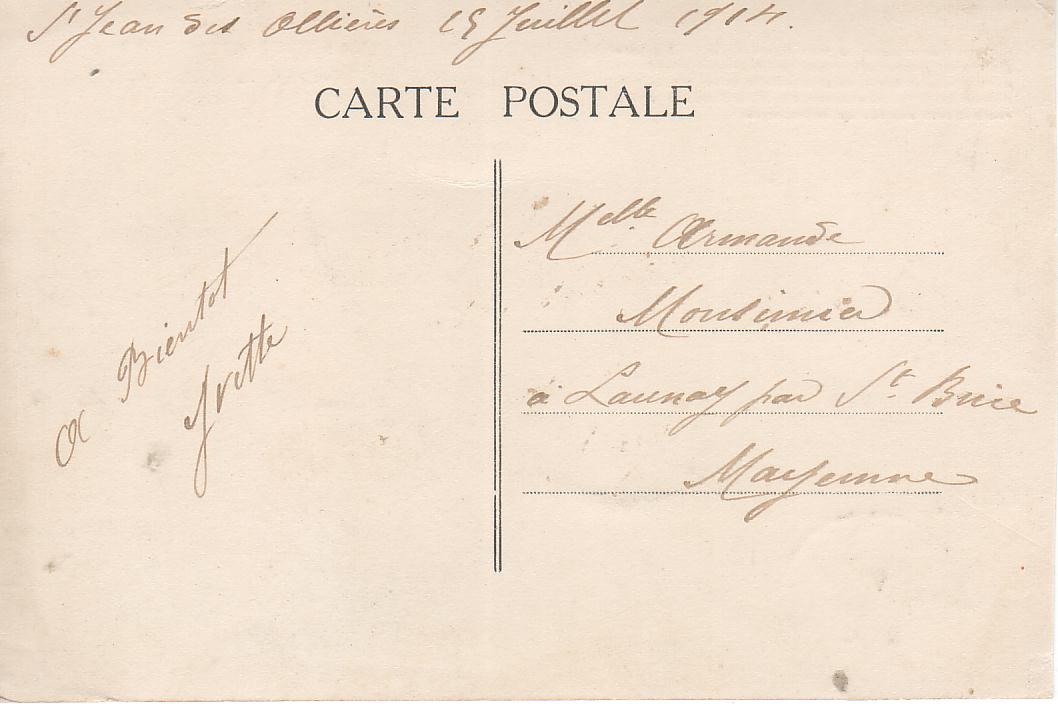 St Jean des Ollières 15 Juillet 1914.
CARTE POSTALE
Melle Armande
Monsimier
à Launay par St. Brice
Mayenne
A Bientot
Yvette